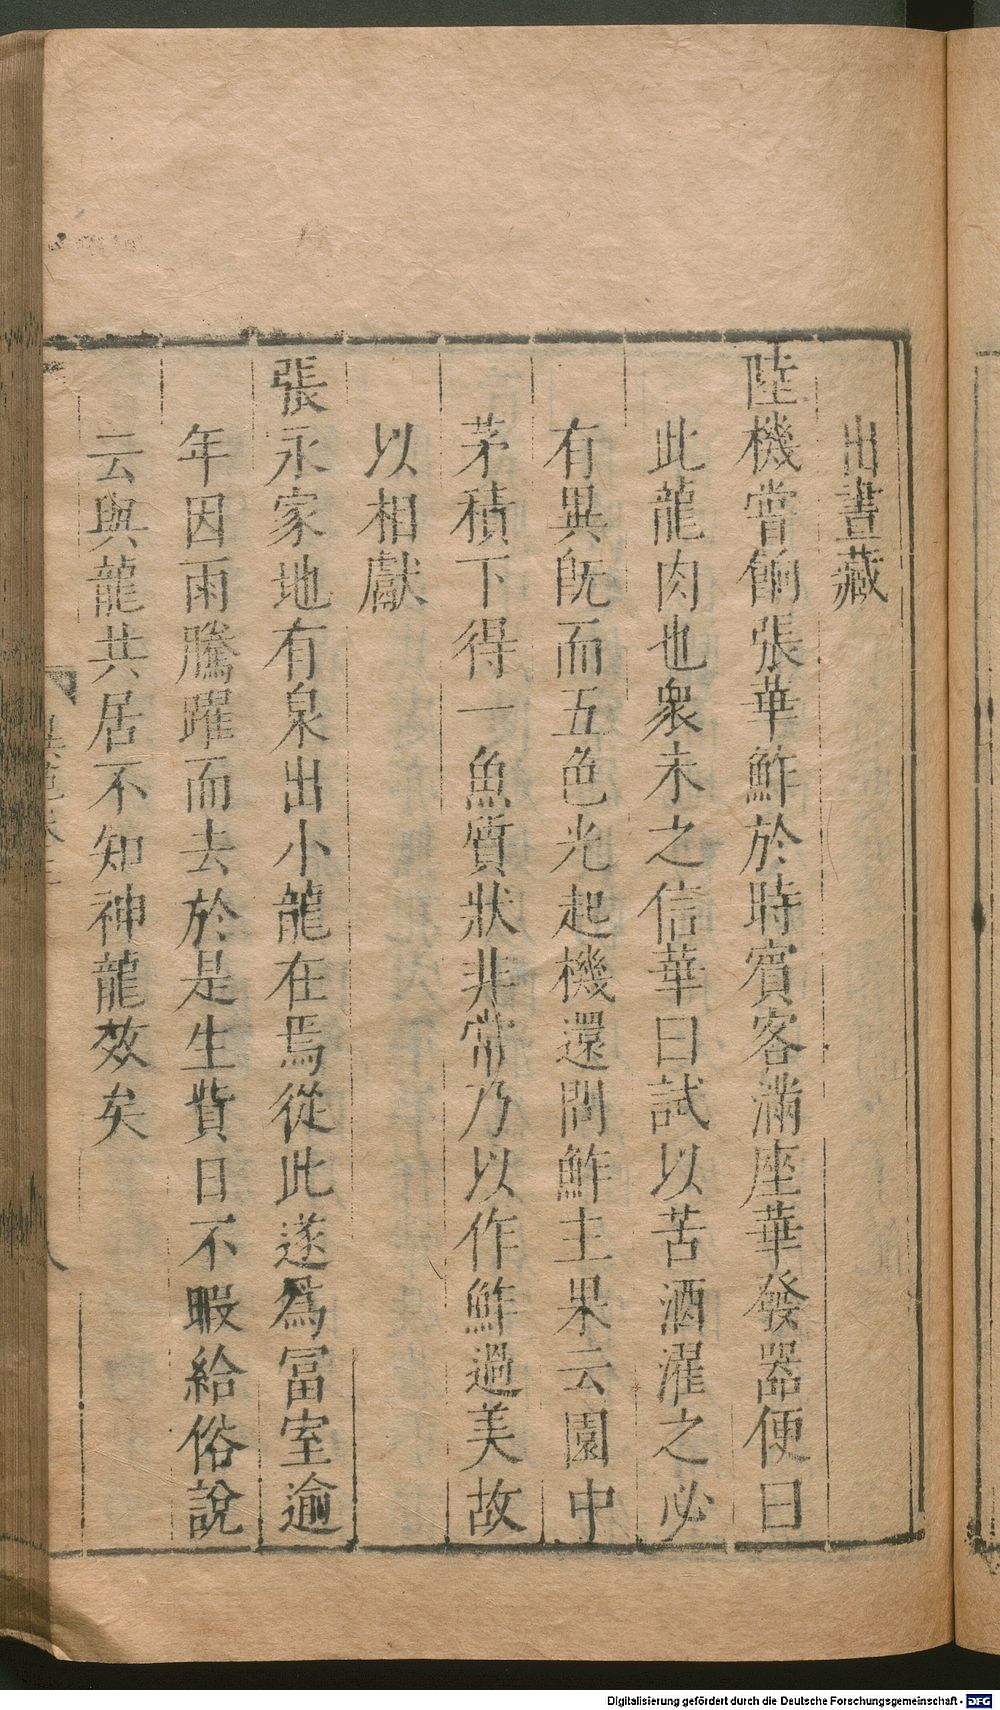 出晝藏
陸機嘗餉張華鮓於時賓客滿座華發器便曰
此龍肉也衆未之信華曰試以苦酒濯之必
有異旣而五色光起機還問鮓主果云園中
茅積下得一魚質狀非常乃以作鮓過美故
以相獻
張永家地有泉出小龍在焉從此遂爲冨室逾
年因雨騰躍而去於是生貲日不暇給俗說
云與龍共居不知神龍效矣
Digitalisierung gefördert durch die Deutsche Forschungsgemeinschaft - DFG